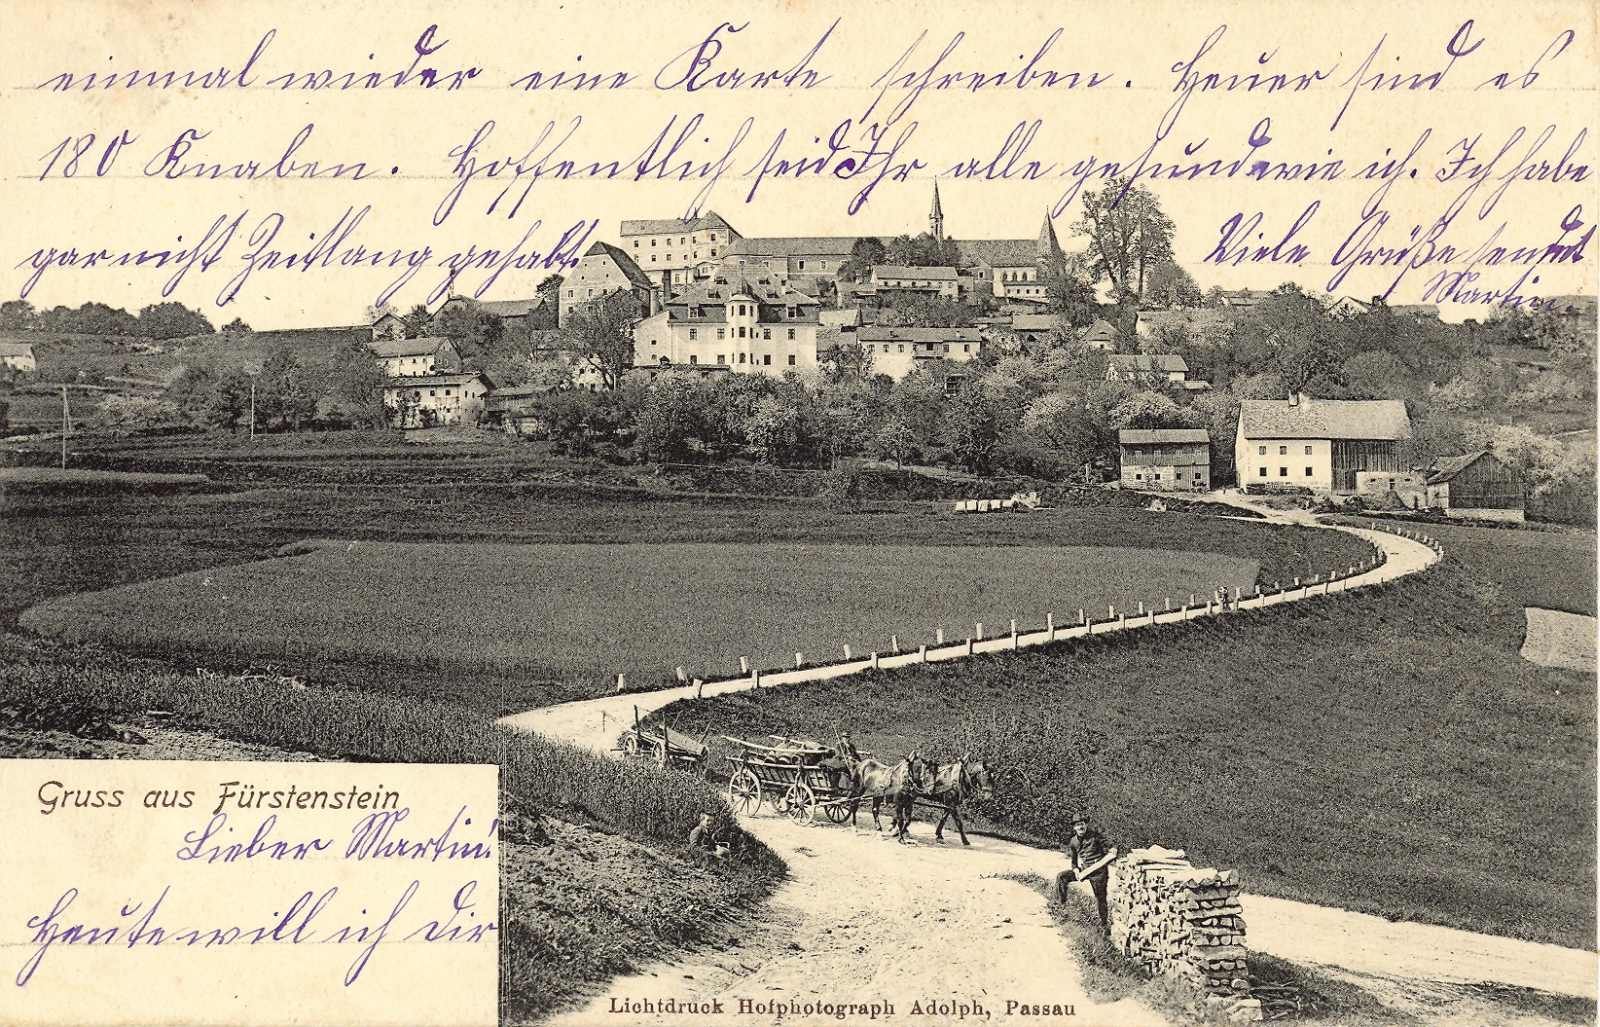 Gruss aus Fürstenstein
Lieber Martin!
Heute will ich Dir
einmal wieder eine Karte schreiben. Heuer sind es
180 Knaben. Hoffentlich seid Ihr alle gesund wie ich. Ich habe
gar nicht Zeitlang gehabt.
Viele Grüße sendet
Martin
Lichtdruck Hofphotograph Adolph, Passau